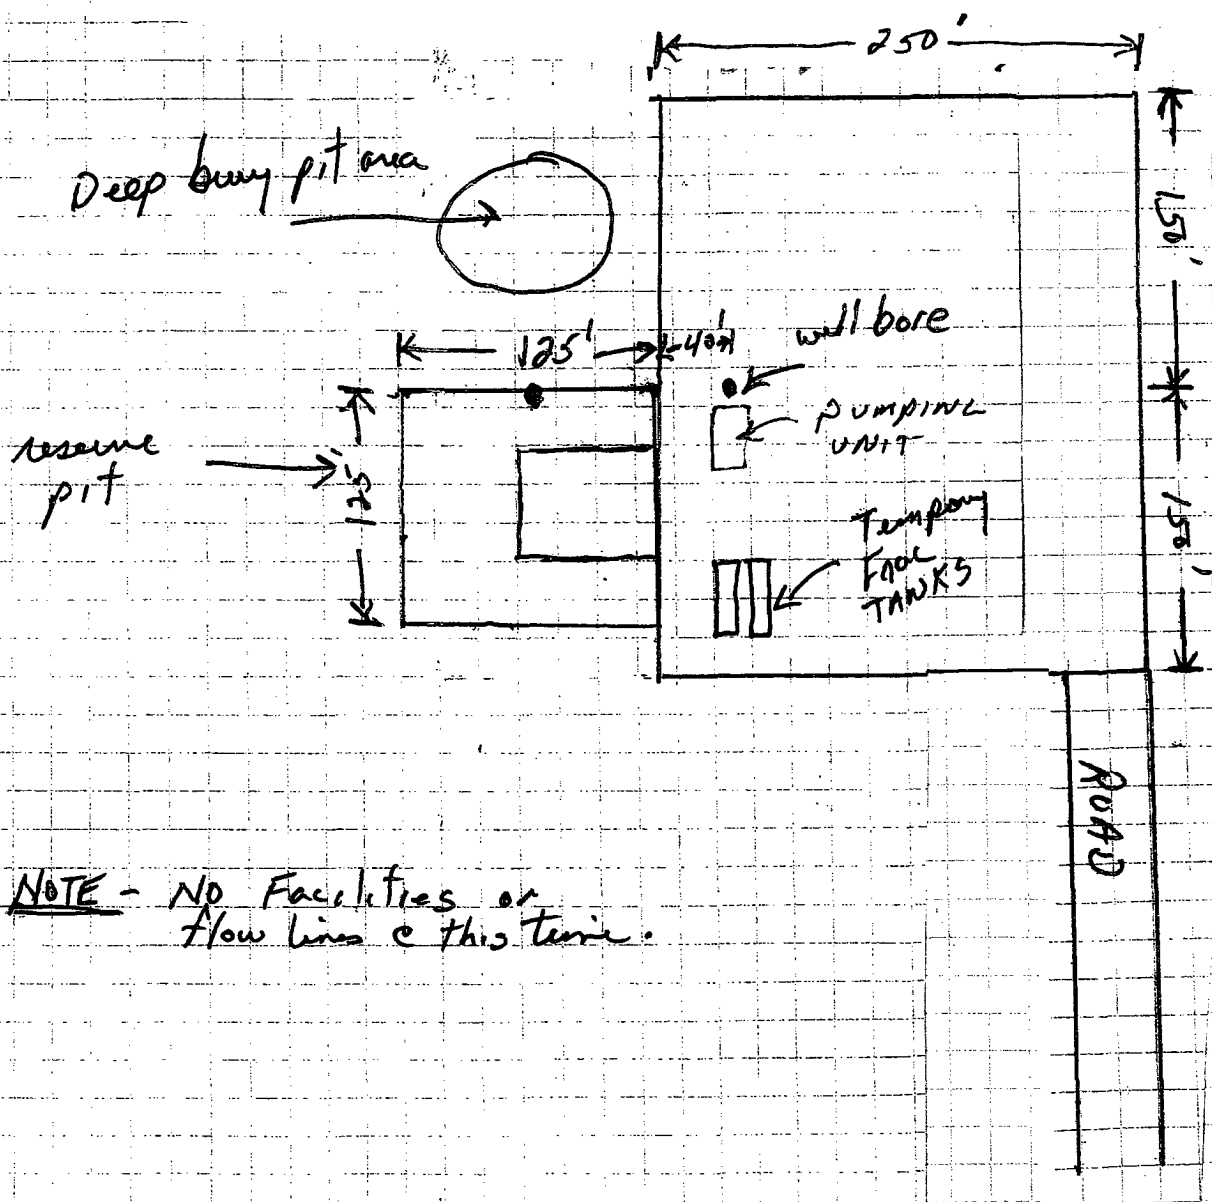 250'
Deep bury pit area
150'
125'
40'
well bore
PUMPING
UNIT
reserve
pit
125'
150'
Tempory
Frac
TANKS
ROAD
NOTE - NO Facilities or
flow lines @ this time.